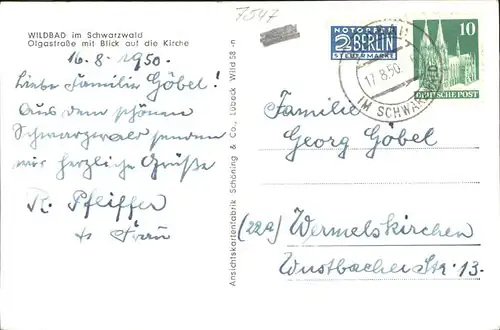 7547
WILDBAD im Schwarzwald
Olgastraße mit Blick auf die Kirche
16.8.1950.
Liebe Familie Göbel!
Aus dem schönen
Schwarzwald senden
wir herzliche Grüße
R. Pfeiffer
u. Frau
Ansichtskartenfabrik Schöning & Co., Lübeck Wild 58 -n
NOTOPFER
2 BERLIN
STEUERMARKE
17.8.50
IM SCHWARZWALD
10
DEUTSCHE POST
Familie
Georg Göbel
(22a) Wermelskirchen
Wustbacher Str. 13.